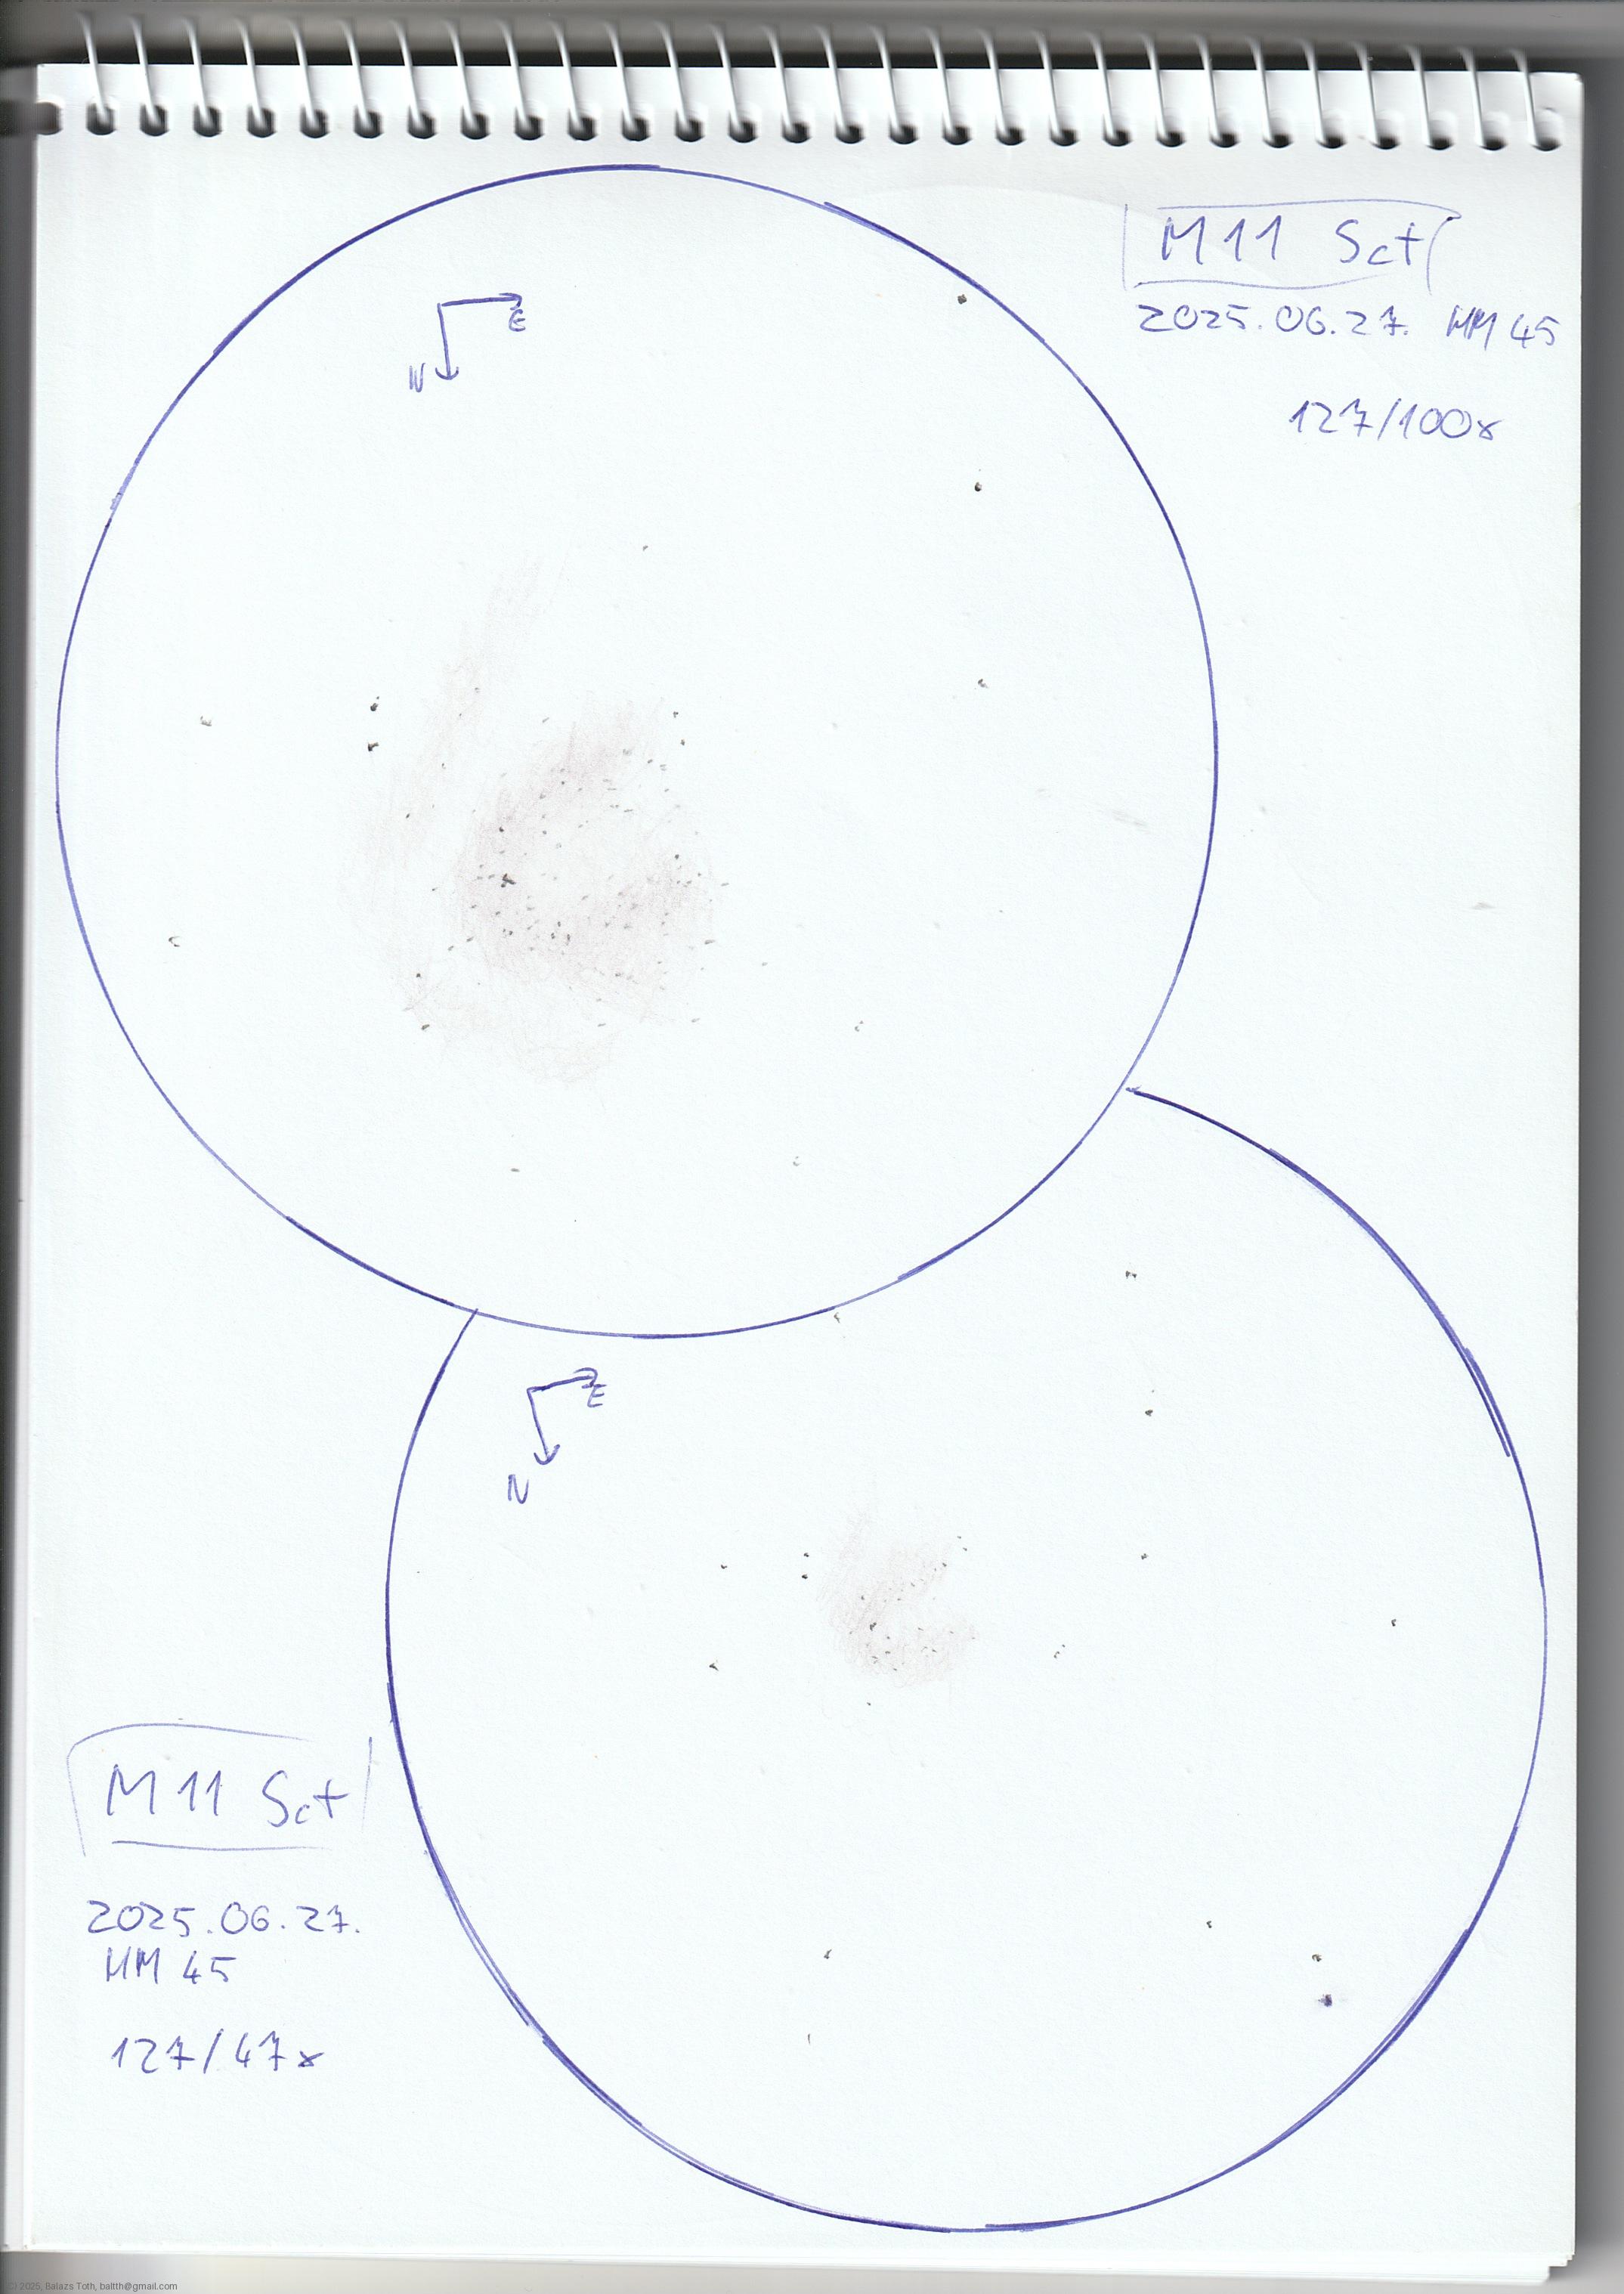 M11 Sct
2025.06.27. HM 45
127/100x
E
N
E
N
M11 Sct
2025.06.27.
HM 45
127/47x
© 2025, Balazs Toth, baltth@gmail.com